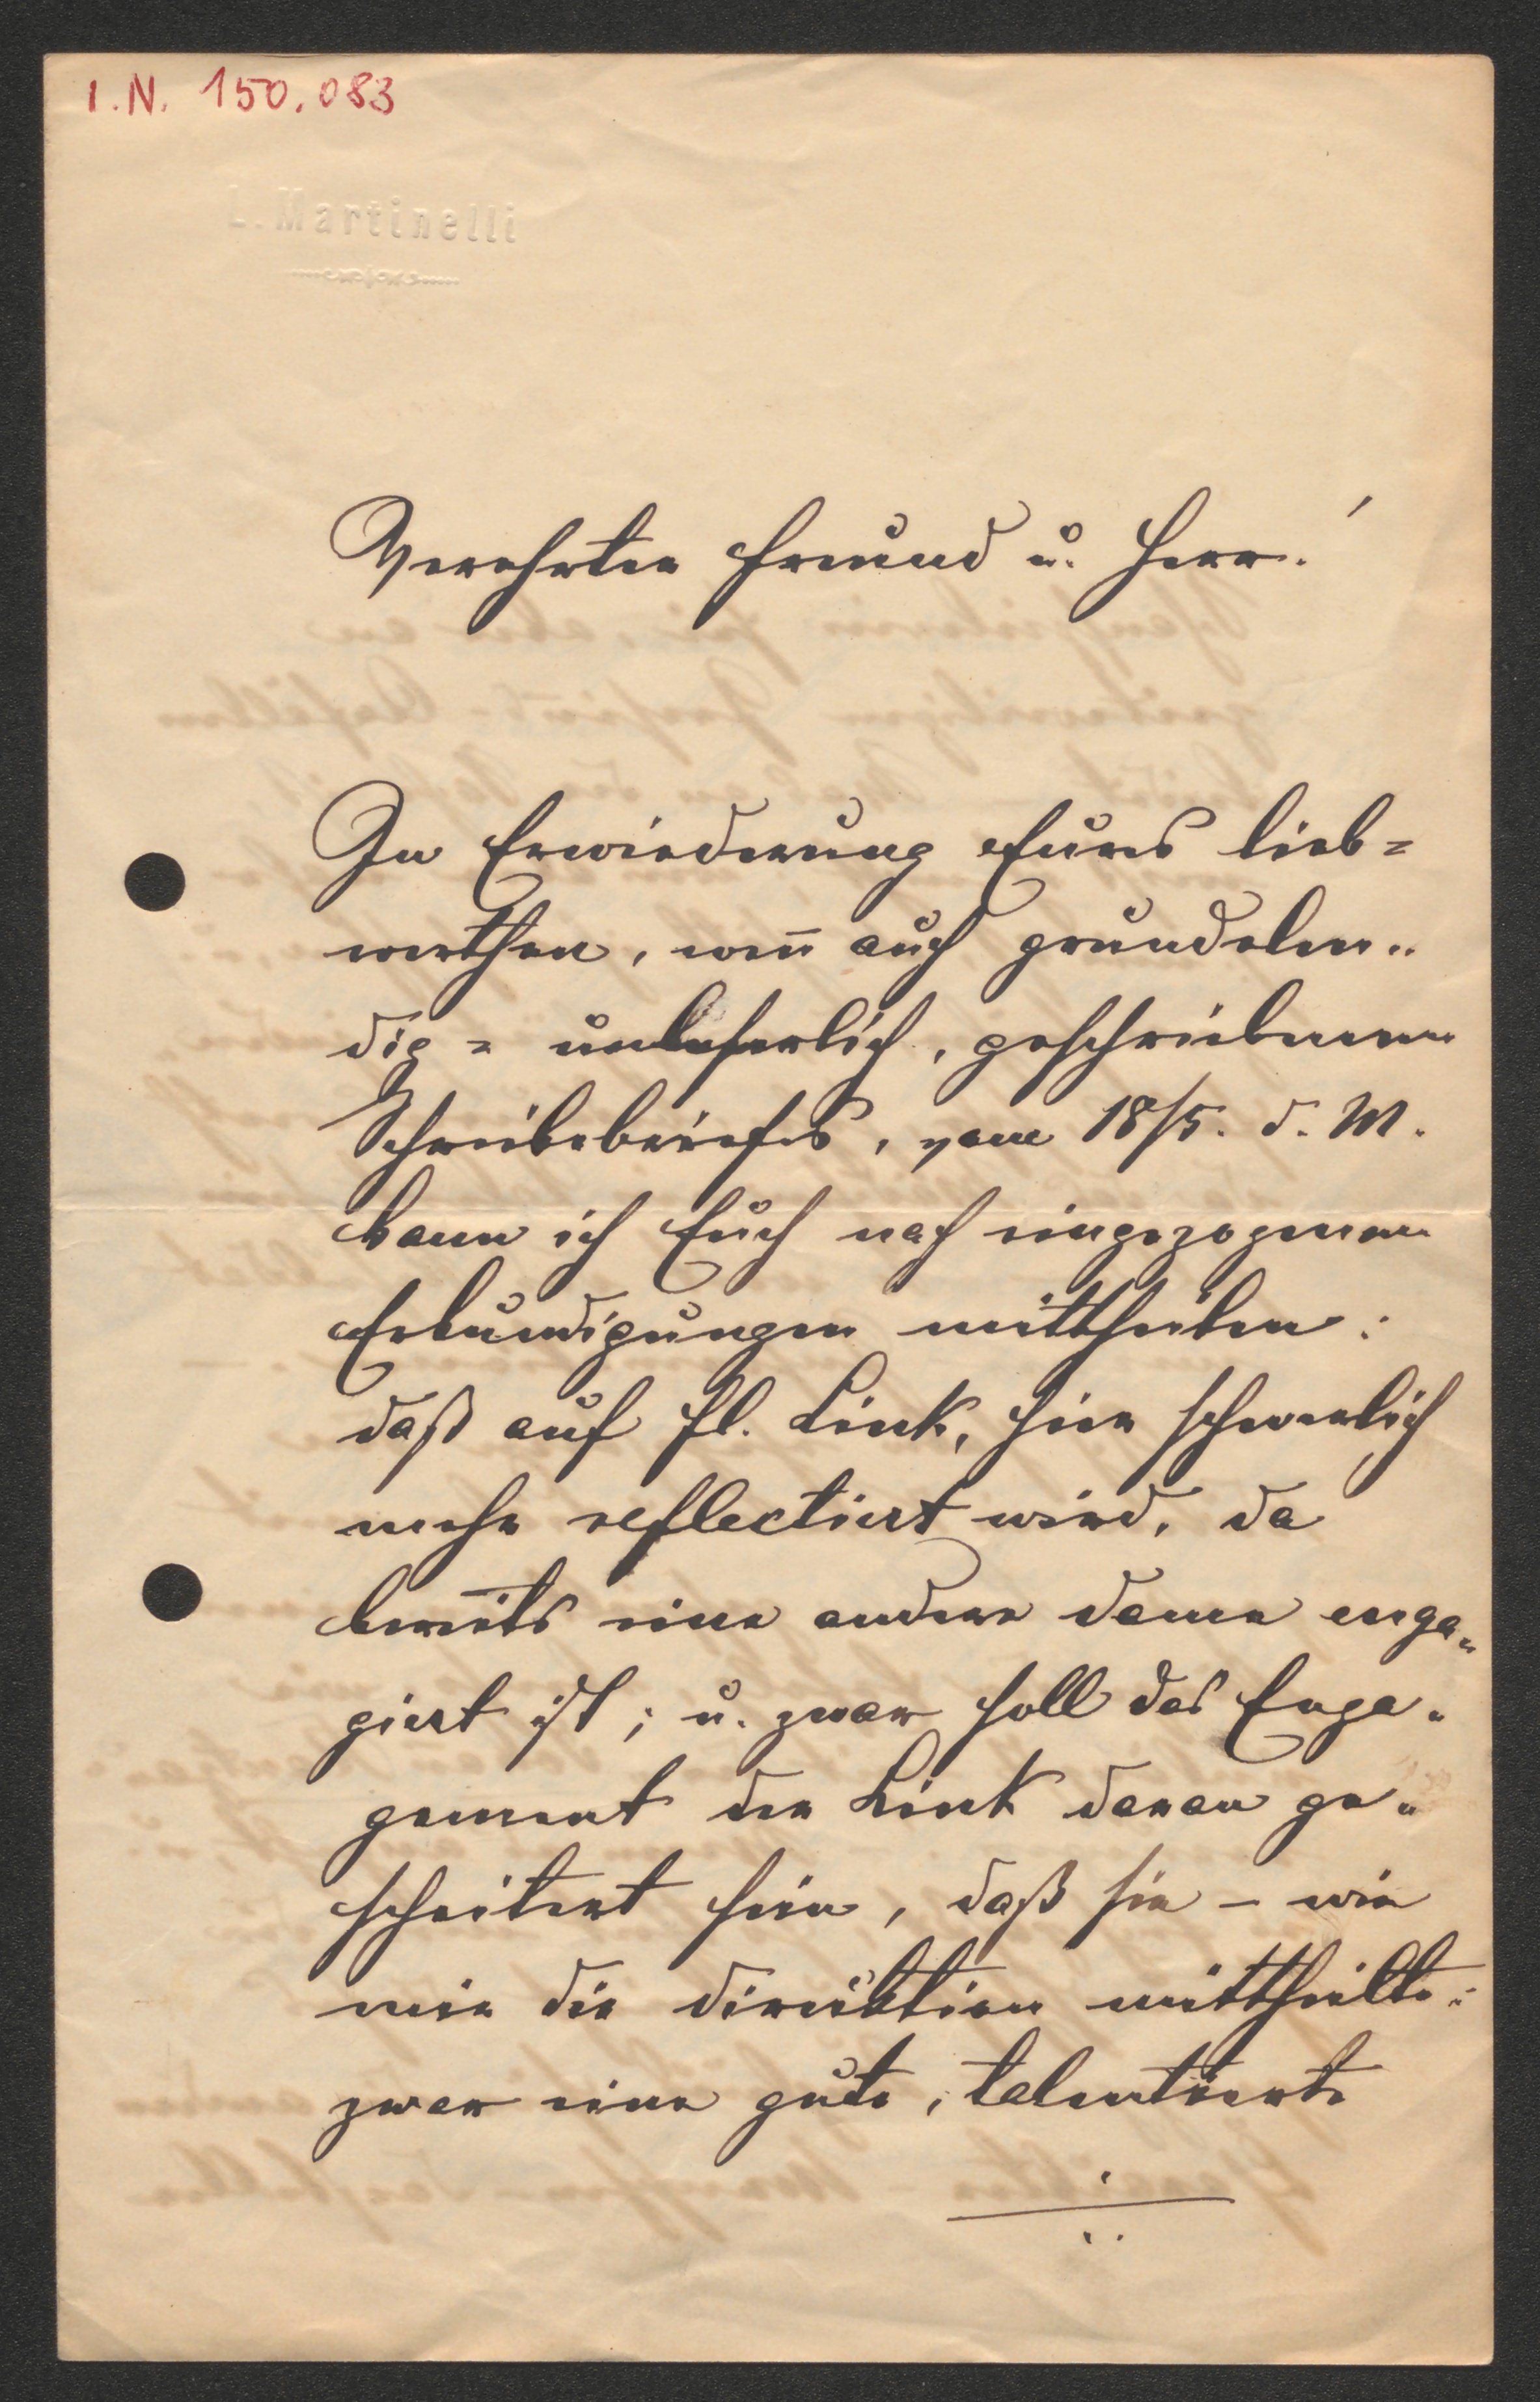 I.N. 150.083
L. Martinelli
Verehrter Freund u. Herr!
In Erwiederung Eures lieb=
werthen, wen̄ auch grundelen-
dig = unleserlich, geschriebenen
Schreibebriefes, vom 18/5. d. M.
kann ich Euch nach eingezogenen
Erkundigungen mittheilen:
daß auf Frl. Link, hier schwerlich
mehr reflectiert wird, da
bereits eine andere Dame enga-
giert ist; u. zwar soll das Enga-
gement der Link daran ge-
scheitert sein, daß sie – wie
mir die Direktion mittheilte:
zwar eine gute, talentierte